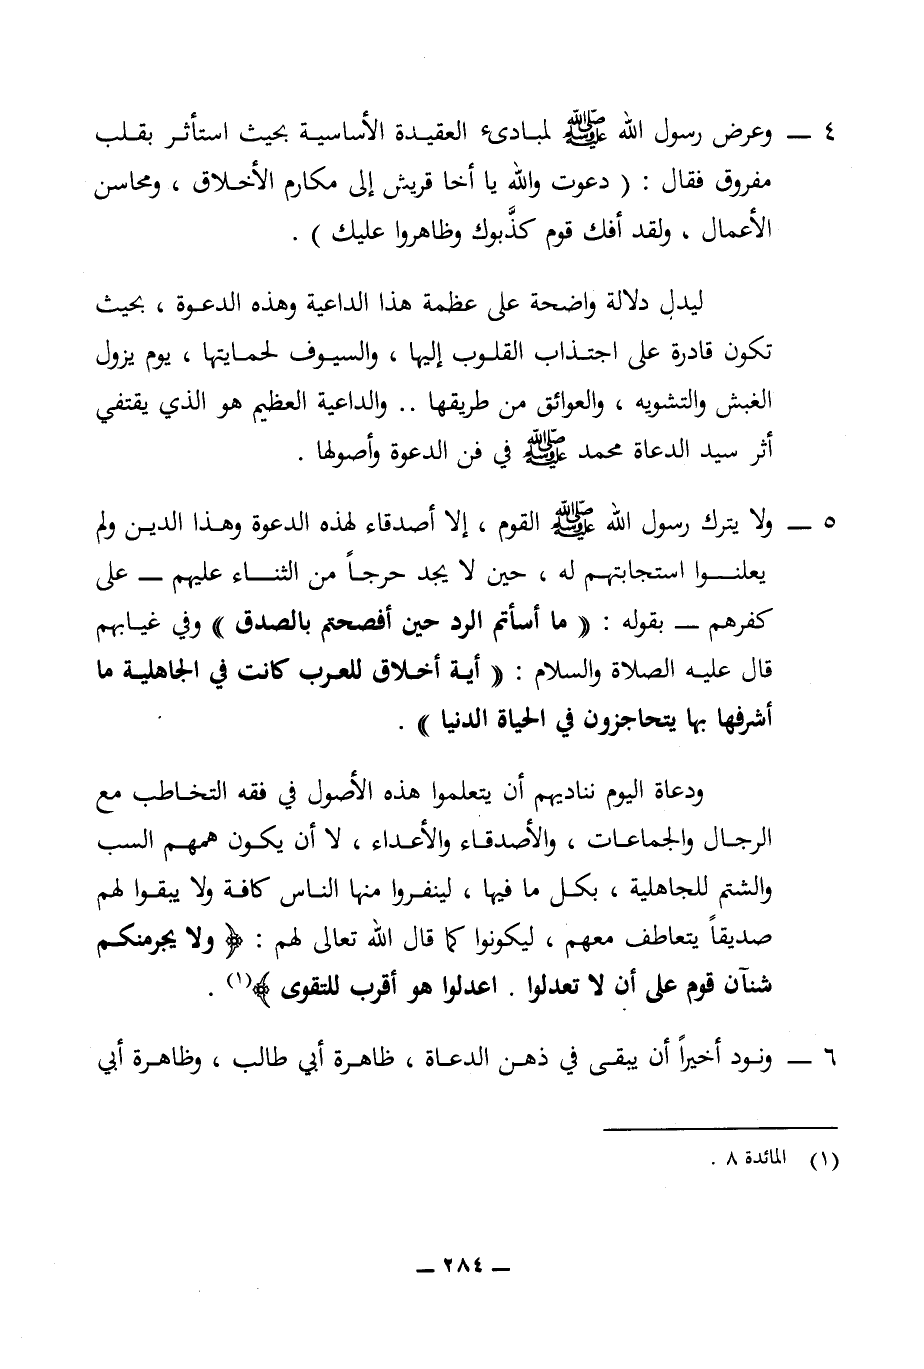 ٤ ــ وعرض رسول الله ﷺ لمبادىء العقيدة الأساسية بحيث استأثر بقلب
مفروق فقال : ( دعوت والله يا أخا قريش إلى مكارم الأخلاق ، ومحاسن
الأعمال ، ولقد أفك قوم كذَّبوك وظاهروا عليك ) .
ليدل دلالة واضحة على عظمة هذا الداعية وهذه الدعوة ، بحيث
تكون قادرة على اجتذاب القلوب إليها ، والسيوف لحمايتها ، يوم يزول
الغبش والتشويه ، والعوائق من طريقها .. والداعية العظيم هو الذي يقتفي
أثر سيد الدعاة محمد ﷺ في فن الدعوة وأصولها .
٥ ــ ولا يترك رسول الله ﷺ القوم ، إلا أصدقاء لهذه الدعوة وهذا الدين ولم
يعلنوا استجابتهم له ، حين لا يجد حرجاً من الثناء عليهم ــ على
كفرهم ــ بقوله : « ما أسأتم الرد حين أفصحتم بالصدق » وفي غيابهم
قال عليه الصلاة والسلام : « أية أخلاق للعرب كانت في الجاهلية ما
أشرفها بها يتحاجزون في الحياة الدنيا » .
ودعاة اليوم نناديهم أن يتعلموا هذه الأصول في فقه التخاطب مع
الرجال والجماعات ، والأصدقاء والأعداء ، لا أن يكون همهم السب
والشتم للجاهلية ، بكل ما فيها ، لينفروا منها الناس كافة ولا يبقوا لهم
صديقاً يتعاطف معهم ، ليكونوا كما قال الله تعالى لهم : ﴿ ولا يجرمنكم
شنآن قوم على أن لا تعدلوا . اعدلوا هو أقرب للتقوى ﴾(١) .
٦ ــ ونود أخيراً أن يبقى في ذهن الدعاة ، ظاهرة أبي طالب ، وظاهرة أبي
(١) المائدة ٨ .
ــ ٢٨٤ ــ